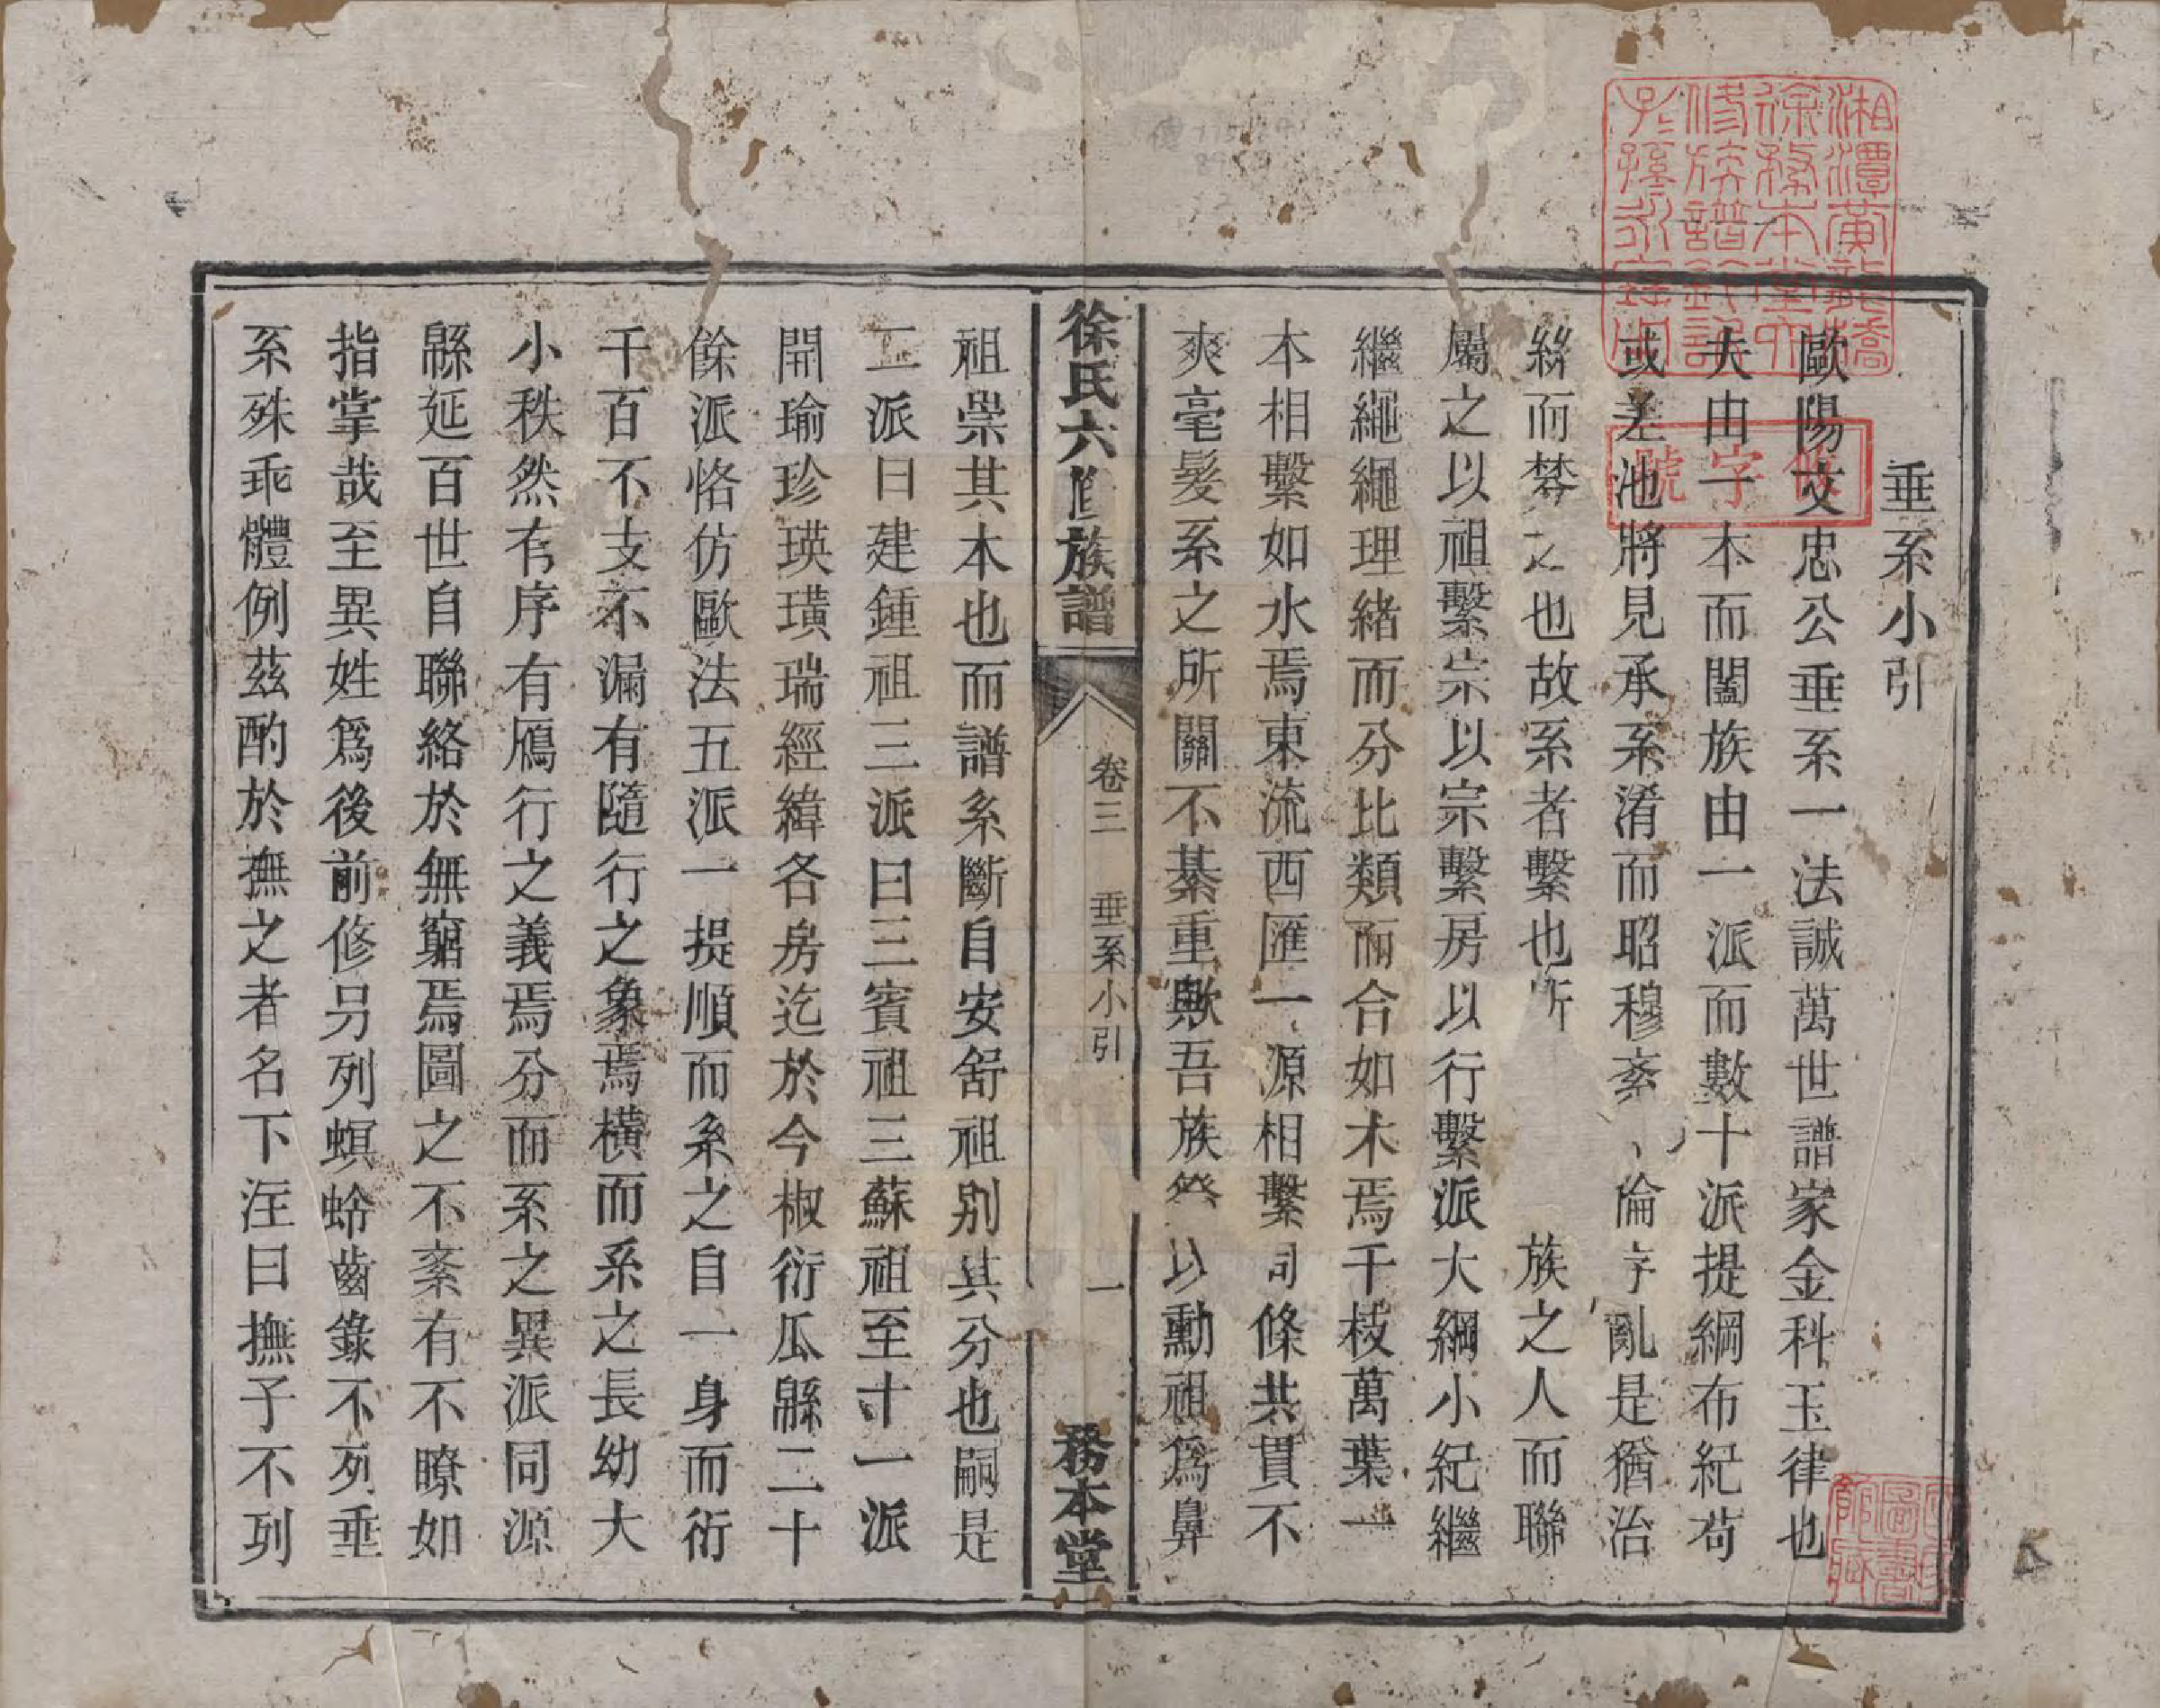 垂系小引
歐陽文忠公垂系一法誠萬世譜家金科玉律也
夫由一本而闔族由一派而數十派提綱布紀苟
或差池將見承系淆而昭穆紊倫字亂是猶治
絲而棼之也故系者繫也所族之人而聯
屬之以祖繫宗以宗繫房以行繫派大綱小紀繼
繼繩繩理緒而分比類而合如木焉千枝萬葉一
本相繫如水焉東流西匯一源相繫同條共貫不
爽毫髮系之所關不綦重歟吾族然以勳祖爲鼻
徐氏六修族譜
卷三
垂系小引
一
務本堂
祖崇其本也而譜系斷自安舒祖别其分也嗣是
二派曰建鍾祖三派曰三賓祖三蘇祖至十一派
開瑜珍瑛璜瑞經緯各房迄於今椒衍瓜緜二十
餘派恪仿歐法五派一提順而系之自一身而衍
千百不支不漏有隨行之象焉橫而系之長幼大
小秩然有序有鴈行之義焉分而系之異派同源
緜延百世自聯絡於無窮焉圖之不紊有不瞭如
指掌哉至異姓爲後前修另列螟蛉齒錄不列垂
系殊乖體例茲酌於撫之者名下注曰撫子不列
湘潭黃龍橋
徐務本堂六
修族譜鈐記
子孫永寶用
字號